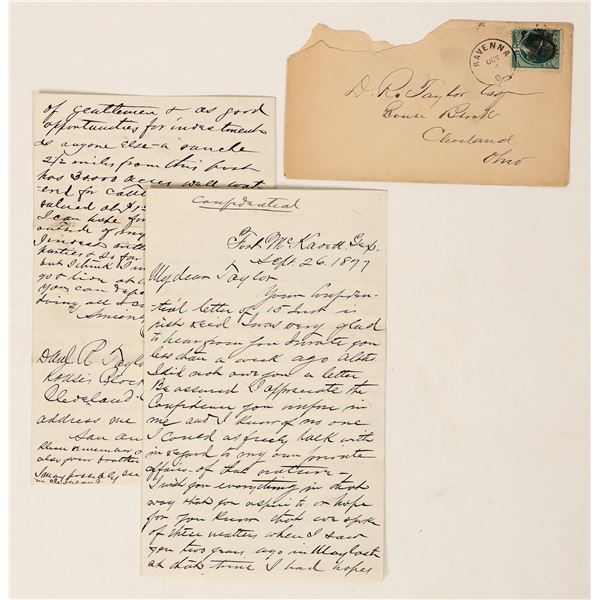 RAVENNA
OCT
O
D. R. Taylor Esq
House Block
Cleveland
Ohio
of gentlemen & as good
opportunities for investment
as anyone else - a ranche
2 1/2 miles from this post
has 30000 acres well wat
ered for cattle
valued at $1
I can hope for
outside of my
I invest with
parties & is for
but I think I
go & live at
you can
doing all I c
Daul R. Taylo
Block
Cleveland
address me
San An
remember
also your brother
I may possibly see
in Cleveland
Confidential
Fort McKavett Tex.
Sept 26, 1877
My dear Taylor
Your Confiden-
tial letter of 15 Inst is
just recd I was very glad
to hear from you I wrote you
less than a week ago altho
I did not owe you a letter
Be assured I appreciate the
Confidence you impose in
me and I know of no one
I could as freely talk with
in regard to my own private
affairs of that nature -
I wish you everything in that
way that you aspire to or hope
for you know that we spoke
of these matters when I saw
you two years ago in May last
at that time I had hopes